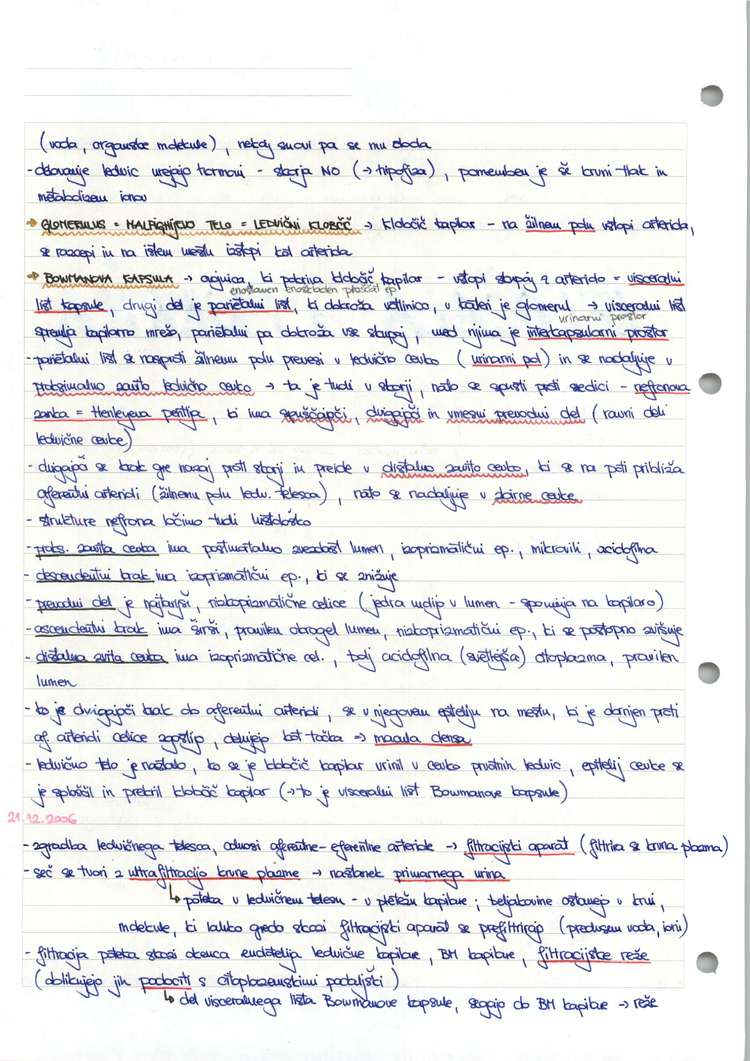 (voda, organske molekule), nekaj snovi pa se mu doda
- delovanje ledvic urejajo hormoni - skorja NO (→ hipofiza), pomemben je še krvni tlak in
metabolizem ionov
→ GLOMERULUS = MALPIGHIJEVO TELO = LEDVIČNI KLOBČIČ → klobčič kapilar - na žilnem polu vstopi arteriola,
se razcepi in na istem mestu izstopi kot arteriola
→ BOWMANOVA KAPSULA → ovojnica, ki pokriva klobčič kapilar - vstopi skupaj z arteriolo = visceralni
enostaven enoskladen ploščat ep.
list kapsule, drugi del je parietalni list, ki obkroža votlinico, v kateri je glomerul → visceralni list
urinarni prostor
spremlja kapilarno mrežo, parietalni pa obkroža vse skupaj, med njima je interkapsularni prostor
- parietalni list se nasproti žilnemu polu prevesi v ledvično cevko (urinarni pol) in se nadaljuje v
proksimalno zavito ledvično cevko → ta je tudi v skorji, nato se spusti proti sredici - nefronova
zanka = Henleyeva pentlja, ki ima spuščajoči, dvigajoči in vmesni prevodni del (ravni deli
ledvične cevke)
- dvigajoči se krak gre nazaj proti skorji in preide v distalno zavito cevko, ki se na poti približa
aferentni arterioli (žilnemu polu ledv. telesca), nato se nadaljuje v zbirne cevke
- strukture nefrona ločimo tudi histološko
- proks. zavita cevka ima postmortalno zvezdast lumen, izoprizmatični ep., mikrovili, acidofilna
- descendentni krak ima izoprizmatični ep., ki se znižuje
- prevodni del je najtanjši, nizkoprizmatične celice (jedra udijo v lumen - spominja na kapilaro)
- ascendentni krak ima širši, pravilen okrogel lumen, nizkoprizmatični ep., ki se postopno zvišuje
- distalna zvita cevka ima izoprizmatične cel., bolj acidofilna (svetlejša) citoplazma, pravilen
lumen
- ko je dvigajoči krak ob aferentni arterioli, se v njegovem epiteliju na mestu, ki je obrnjen proti
af. arterioli celice zgostijo, delujejo kot točka → macula densa
- ledvično telo je nastalo, ko se je klobčič kapilar urinil v cevko prvotnih ledvic, epitelij cevke se
je sploščil in prekril klobčič kapilar (→ to je visceralni list Bowmanove kapsule)
21.12.2006
- zgradba ledvičnega telesca, odnosi aferentne - eferentne arteriole → filtracijski aparat (filtrira se krvna plazma)
- seč se tvori z ultrafiltracijo krvne plazme → nastanek primarnega urina
↳ poteka v ledvičnem telesu - v pletežu kapilare; beljakovine ostanejo v krvi,
molekule, ki lahko gredo skozi filtracijski aparat se prefiltrirajo (predvsem voda, ioni)
- filtracija poteka skozi okenca endotelija ledvične kapilare, BM kapilare, filtracijske reže
(oblikujejo jih podociti s citoplazemskimi podaljški)
↳ del visceralnega lista Bowmanove kapsule, segajo do BM kapilare → reže